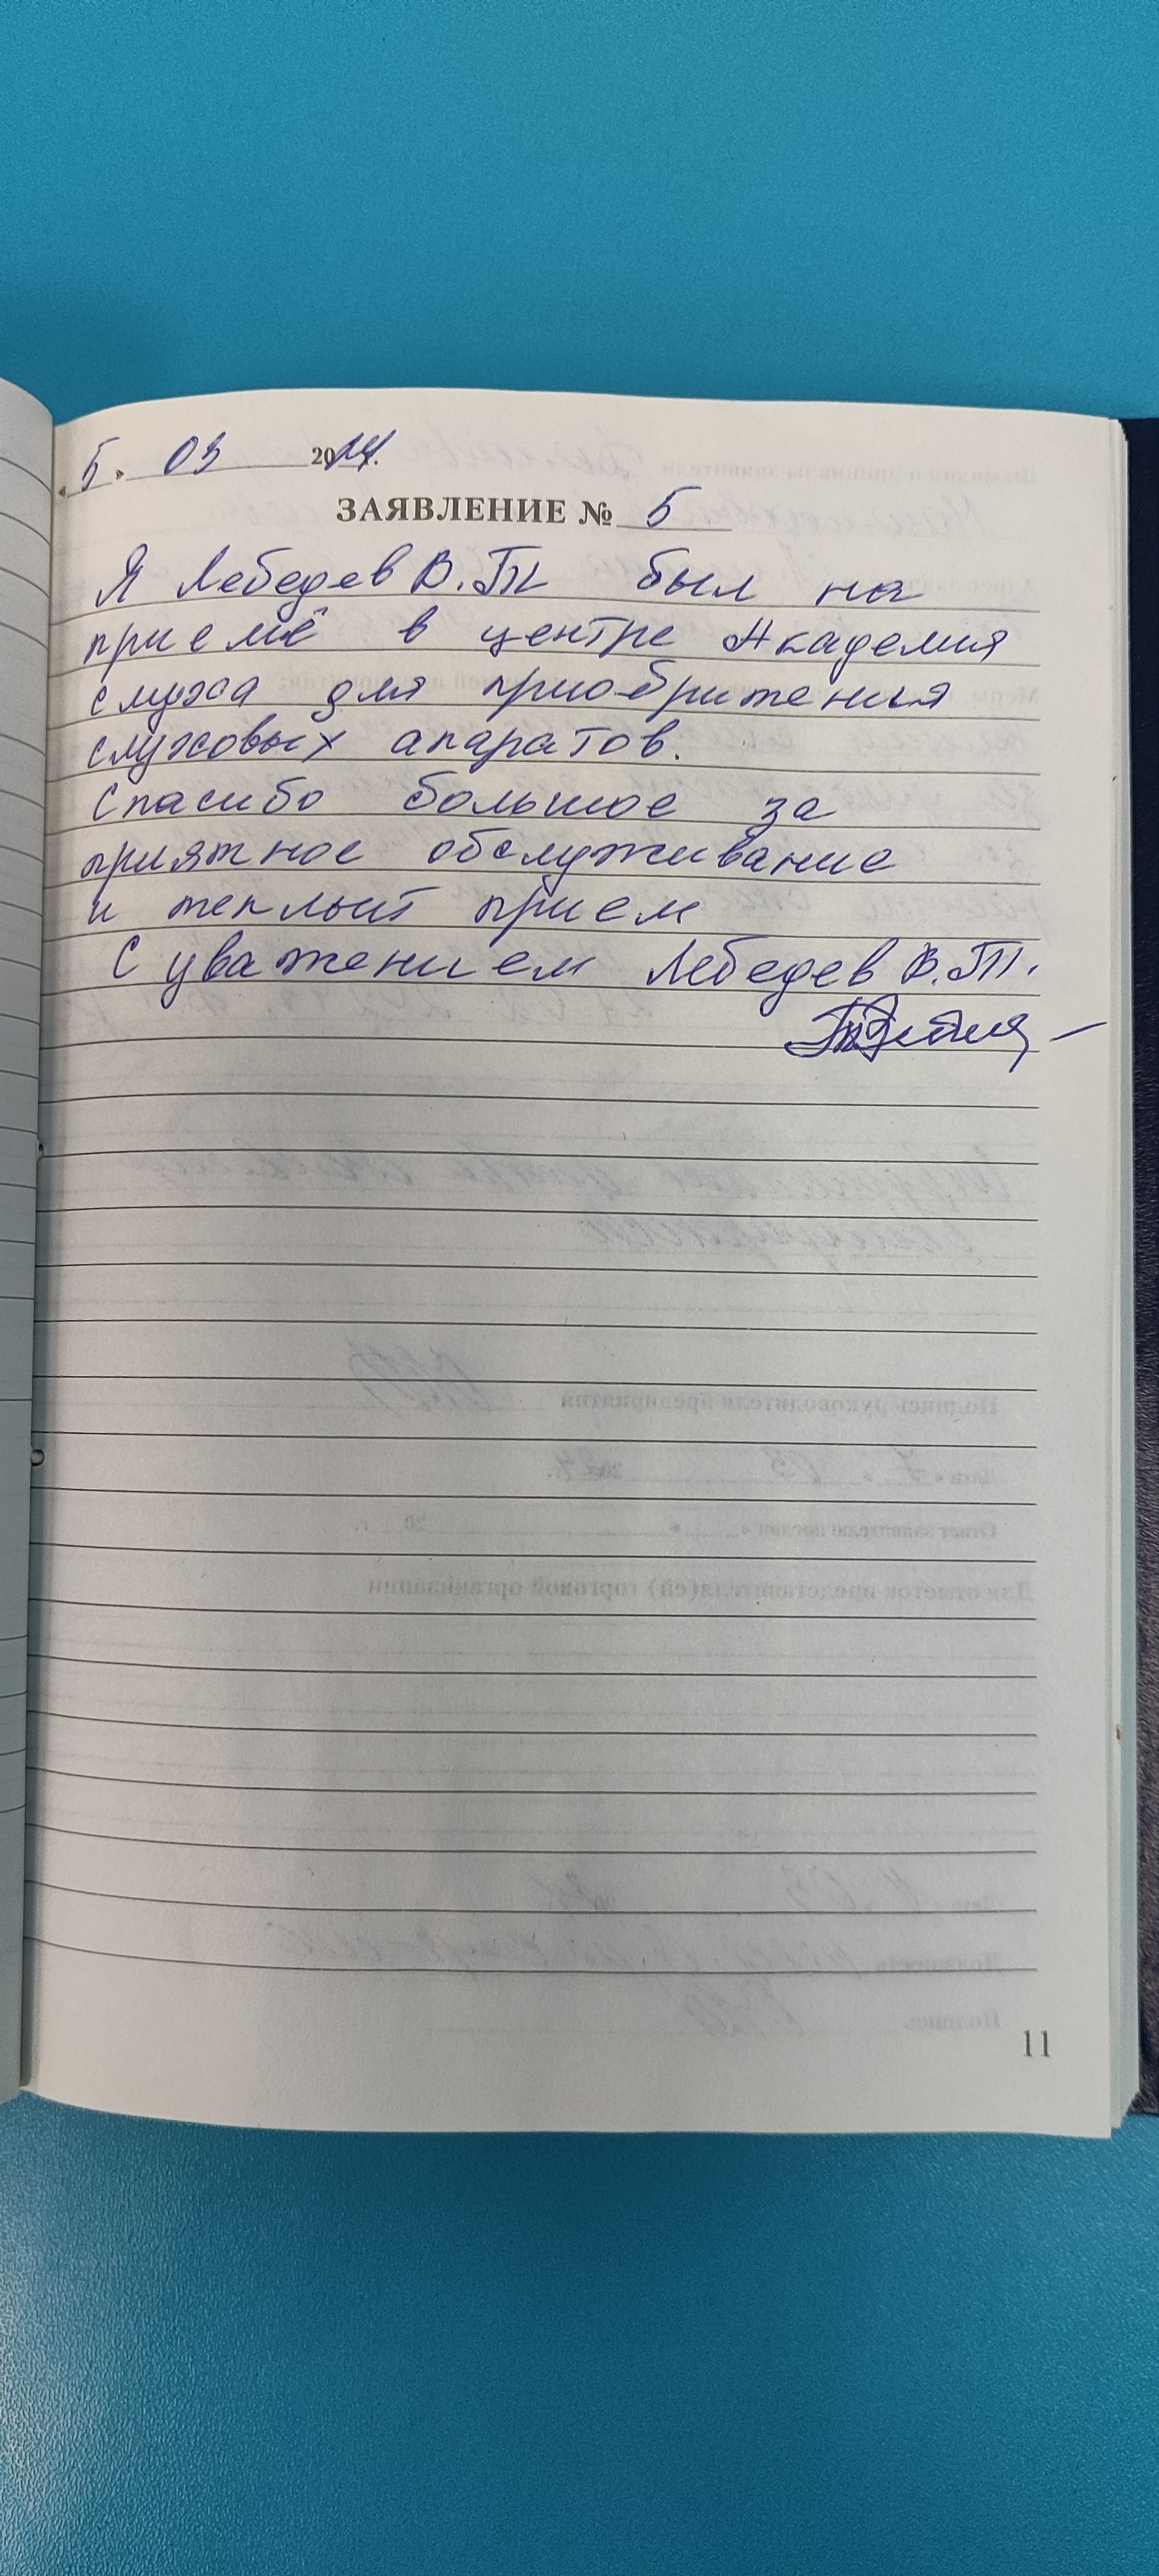 « 5 » 03 2024г.
ЗАЯВЛЕНИЕ № 5
Я Лебедев В.П был на
приемё в центре Академия
слуха для приобритения
слуховых апаратов.
Спасибо большое за
приятное обслуживание
и теплый прием
С уважением Лебедев В.П.
11